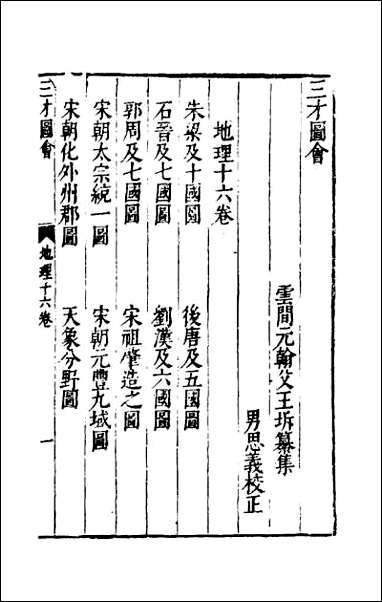 三才圖會
雲間元翰父王圻纂集
男思義校正
地理十六卷
朱梁及十國圖　後唐及五國圖
石晉及七國圖　劉漢及六國圖
郭周及七國圖　宋祖肇造之圖
宋朝太宗統一圖　宋朝元豐九域圖
宋朝化外州郡圖　天象分野圖
三才圖會　地理十六卷　一